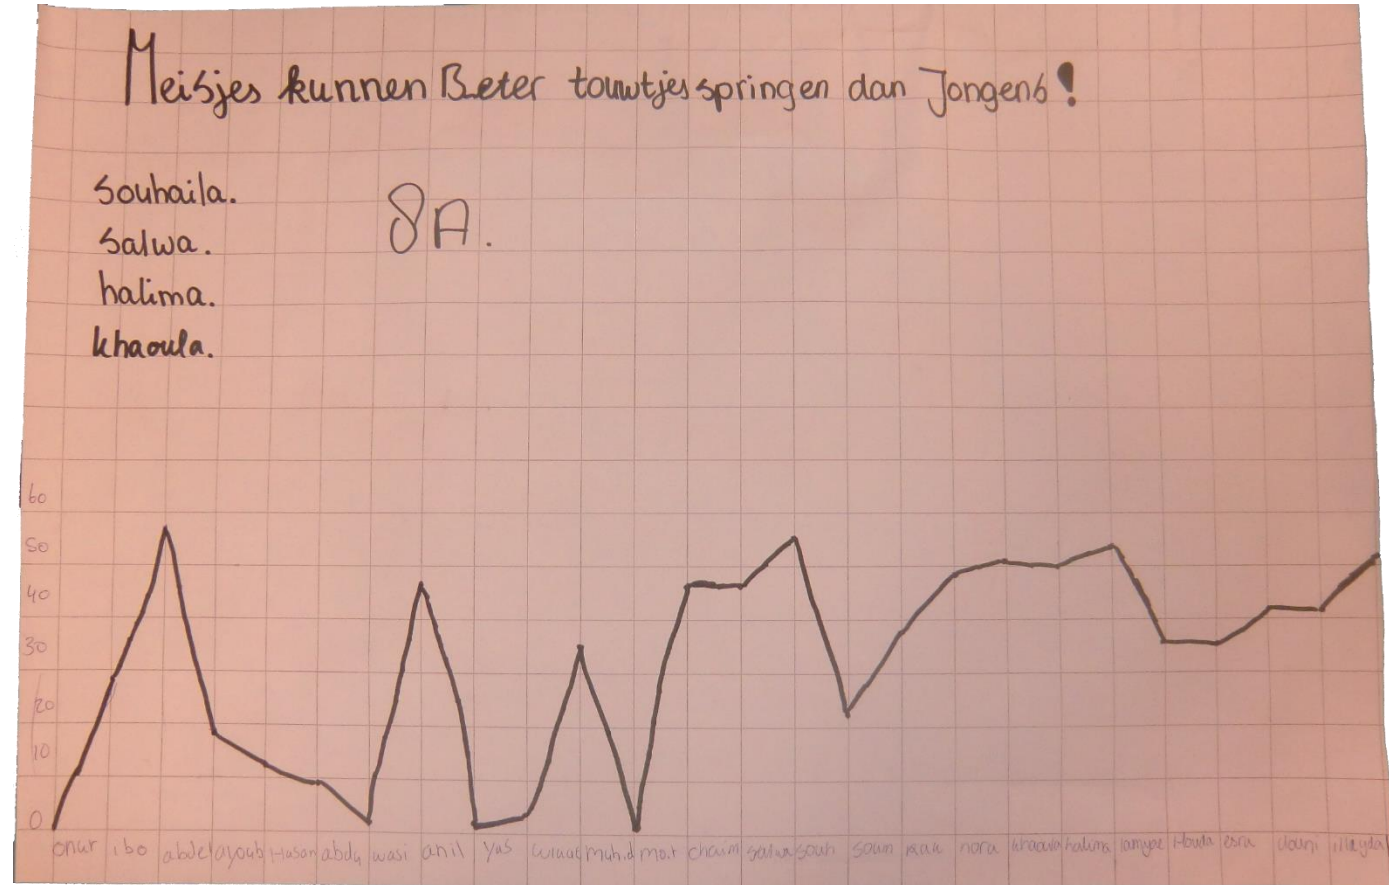 Meisjes kunnen Beter touwtjes springen dan Jongens!
Souhaila.
Salwa.
halima.
khaoula.
8A.
60
50
40
30
20
10
0
onur ibo abdel ayoub Hasan abdu wasi anil yas muh.d mo.r chaim salwa souh soum nora khaoula halima lamyae Houda esra douni illeyda